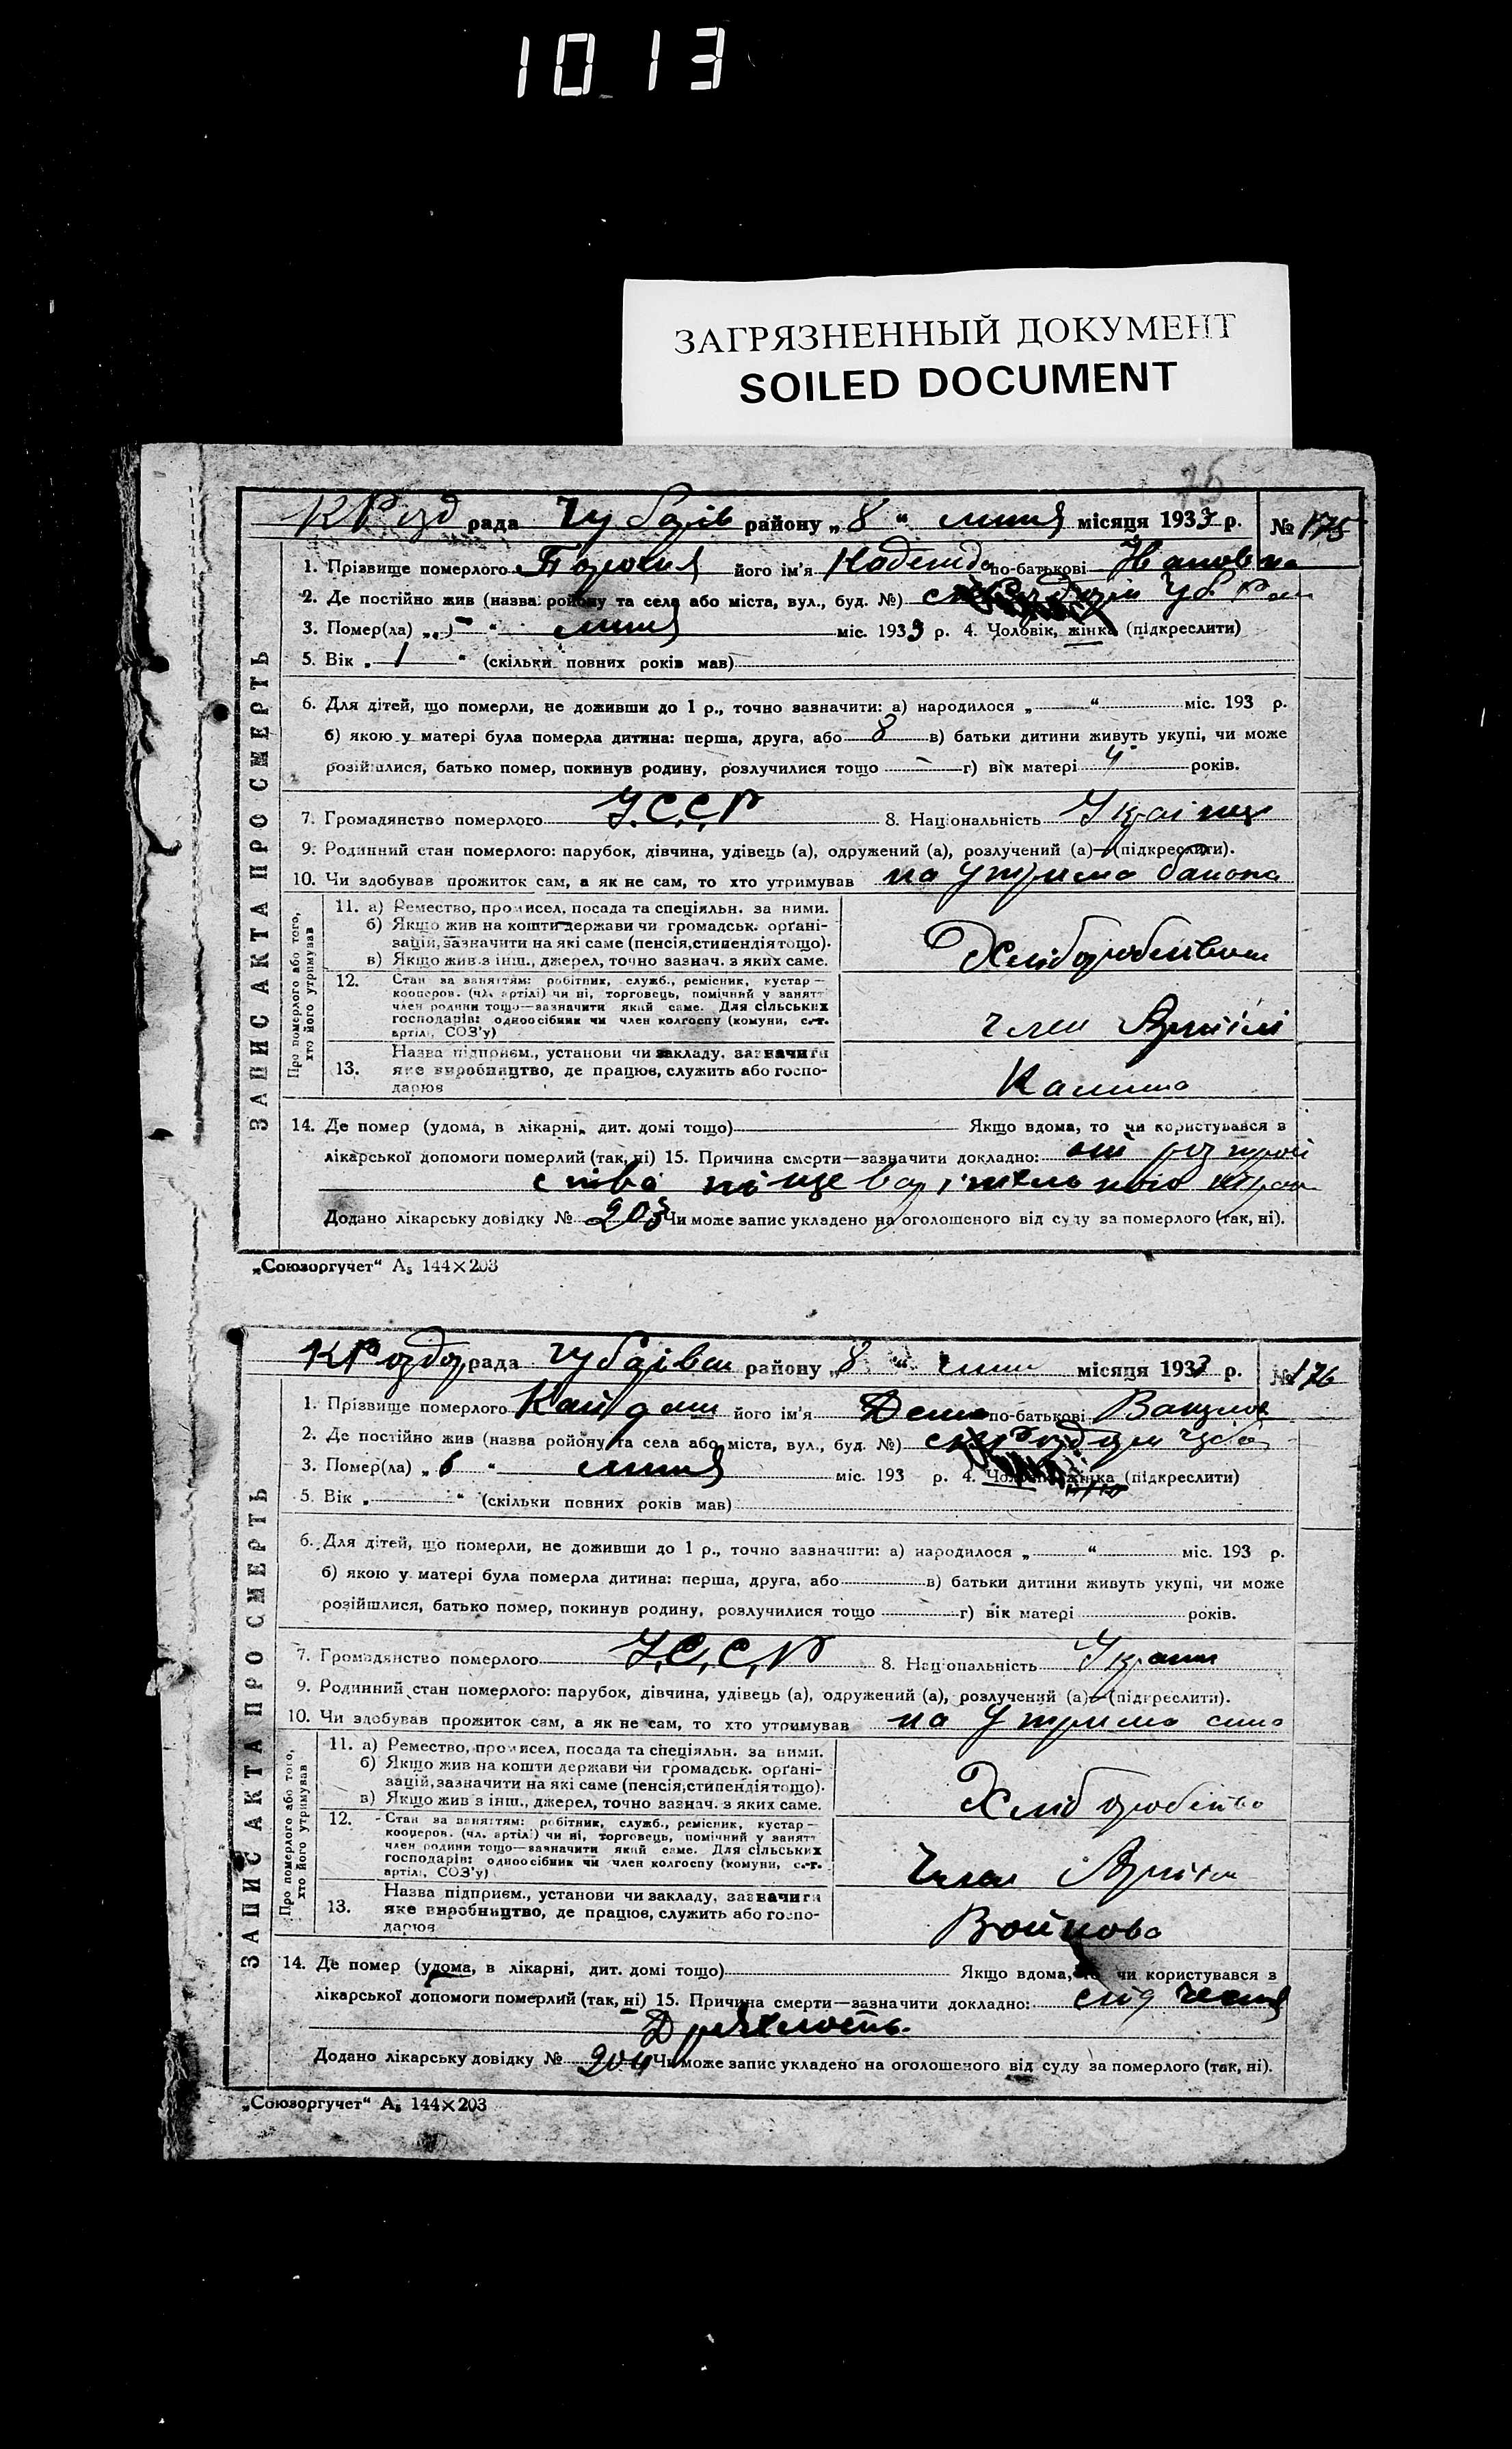 1013
ЗАГРЯЗНЕННЫЙ ДОКУМЕНТ
SOILED DOCUMENT
рада району „ 8 “ липня місяця 1933 р. № 175
ЗАПИС АКТА ПРО СМЕРТЬ
1. Прізвище померлого його ім'я Надежда по-батькові Ивановна
2. Де постійно жив (назва ройону та села або міста, вул., буд. №)
3. Помер(ла) „ “ липня міс. 1933 р. 4. Чоловік, жінка (підкреслити)
5. Вік „ 1 “ (скільки повних років мав)
6. Для дітей, що померли, не доживши до 1 р., точно зазначити: а) народилося „ “ міс. 193 р.
б) якою у матері була померла дитина: перша, друга, або 8 в) батьки дитини живуть укупі, чи може
розійшлися, батько помер, покинув родину, розлучилися тощо г) вік матері років.
7. Громадянство померлого У.С.С.Р 8. Національність
9. Родинний стан померлого: парубок, дівчина, удівець (а), одружений (а), розлучений (а)—(підкреслити).
10. Чи здобував прожиток сам, а як не сам, то хто утримував на утрима
Про померлого або того, хто його утримував
11. а) Ремество, промисел, посада та спеціяльн. за ними.
б) Якщо жив на кошти держави чи громадськ. орґані-
зацій, зазначити на які саме (пенсія, стипендія тощо).
в) Якщо жив з інш., джерел, точно зазнач. з яких саме.
12. Стан за заняттям: робітник, служб., ремісник, кустар—
кооперов. (чл. артілі) чи ні, торговець, помічний у занятт
член родини тощо—зазначити який саме. Для сільських
господарів: одноосібник чи член колгоспу (комуни, с.-г.
артілі, СОЗ'у)
член Артілі
13. Назва підприєм., установи чи закладу, зазначити
яке виробництво, де працює, служить або госпо-
дарює
14. Де помер (удома, в лікарні, дит. домі тощо) Якщо вдома, то чи користувався з
лікарської допомоги померлий (так, ні) 15. Причина смерти—зазначити докладно: от розтрой
ства
Додано лікарську довідку № 203 Чи може запис укладено на оголошеного від суду за померлого (так, ні).
„Союзоргучет“ А₅ 144×203
рада району „ 8 “ липня місяця 1933 р. № 176
ЗАПИС АКТА ПРО СМЕРТЬ
1. Прізвище померлого Кайдаш його ім'я по-батькові
2. Де постійно жив (назва ройону та села або міста, вул., буд. №)
3. Помер(ла) „ 6 “ липня міс. 193 р. 4. Чоловік, жінка (підкреслити)
5. Вік „ “ (скільки повних років мав)
6. Для дітей, що померли, не доживши до 1 р., точно зазначити: а) народилося „ “ міс. 193 р.
б) якою у матері була померла дитина: перша, друга, або в) батьки дитини живуть укупі, чи може
розійшлися, батько помер, покинув родину, розлучилися тощо г) вік матері років.
7. Громадянство померлого У.С.С.Р 8. Національність
9. Родинний стан померлого: парубок, дівчина, удівець (а), одружений (а), розлучений (а)—(підкреслити).
10. Чи здобував прожиток сам, а як не сам, то хто утримував на утрима сина
Про померлого або того, хто його утримував
11. а) Ремество, промисел, посада та спеціяльн. за ними.
б) Якщо жив на кошти держави чи громадськ. орґані-
зацій, зазначити на які саме (пенсія, стипендія тощо).
в) Якщо жив з інш., джерел, точно зазнач. з яких саме.
12. Стан за заняттям: робітник, служб., ремісник, кустар—
кооперов. (чл. артілі) чи ні, торговець, помічний у занятт
член родини тощо—зазначити який саме. Для сільських
господарів: одноосібник чи член колгоспу (комуни, с.-г.
артілі, СОЗ'у)
член
13. Назва підприєм., установи чи закладу, зазначити
яке виробництво, де працює, служить або госпо-
дарює
14. Де помер (удома, в лікарні, дит. домі тощо) Якщо вдома, то чи користувався з
лікарської допомоги померлий (так, ні) 15. Причина смерти—зазначити докладно:
Дряхлость.
Додано лікарську довідку № 204 Чи може запис укладено на оголошеного від суду за померлого (так, ні).
„Союзоргучет“ А₅ 144×203